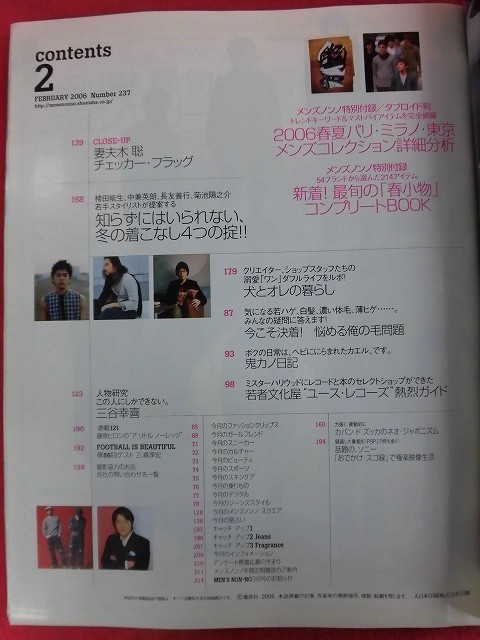 contents
2
FEBRUARY 2006 Number 237
メンズノンノ特別付録／タブロイド判
トレンドキーワード&マストバイアイテムを完全網羅
2006春夏パリ・ミラノ・東京
メンズコレクション詳細分析
メンズノンノ特別付録
54ブランドから選んだ214アイテム
新着! 最旬の「春小物」
コンプリートBOOK
139 CLOSE-UP
妻夫木 聡
チェッカー・フラッグ
168
若手スタイリストが提案する
知らずにはいられない、
冬の着こなし4つの掟!!
179 クリエイター、ショップスタッフたちの
溺愛「ワン」ダフルライフをルポ!
犬とオレの暮らし
87 気になる若ハゲ、白髪、濃い体毛、薄ヒゲ……。
みんなの疑問に答えます!
今こそ決着! 悩める俺の毛問題
93 ボクの日常は、“ヘビににらまれたカエル”、です。
鬼カノ日記
98 ミスターハリウッドにレコードと本のセレクトショップができた
若者文化屋“ユース・レコーズ”熱烈ガイド
123 人物研究
この人にしかできない。
三谷幸喜
190 連載121
藤原ヒロシの“ア リトル ノーレッジ”
192 FOOTBALL IS BEAUTIFUL
ゲスト 三浦淳宏
138 撮影協力のお店
各社の問い合わせ先一覧
65 今月のファッションクリップス
69 今月のガールフレンド
71 今月のスニーカー
72 今月のカルチャー
73 今月のビューティ
74 今月のスポーツ
75 今月のスキンケア
76 今月の乗りもの
77 今月のデジタル
78 今月のジーンズスタイル
128 今月のメンズノンノ・スクエア
136 今月の星占い
187 キャッチ アップ1
198 キャッチ アップ2 Jeans
201 キャッチ アップ3 Fragrance
205 今月のインフォメーション
211 メンズノンノ年間定期購読のご案内
214 MEN'S NON-NO3月号のお知らせ
160
カバン ド ズッカのネオ・ジャポニズム
194
話題の、ソニー
「おでかけ・スゴ録」で極楽映像生活